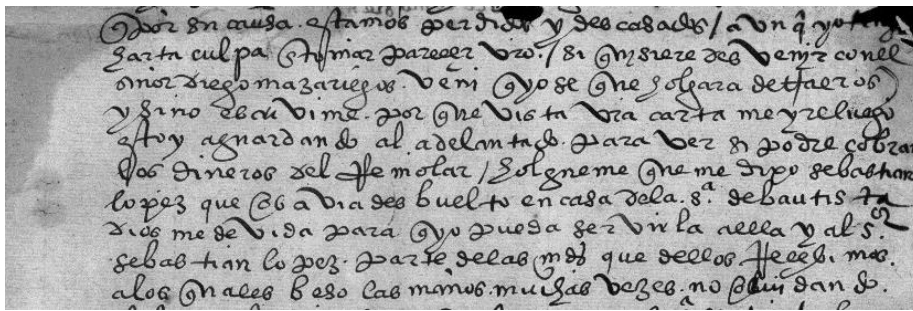 q̃ por su causa. estamos perdidos y descasados / a un q̃ yo teng
harta culpa En tomar parecer vro. / si quisieredes venir con el
señor diego mazariegos. veni q̃ yo se que holgara de traeros
y sino escrivime. por que vista vra carta me yre luego
Estoy aguardando al. adelantado. para ver si podre cobrar
los dineros del Remolar / holgueme que me dixo sebastian
lopez que os aviades buelto en casa de la. sª. de bautista
dios me de vida para q̃ yo pueda servirla a ella y al sor.
sebastian lopez. parte de las mds que dellos Recebimos.
a los quales beso las manos. muchas vezes. no olvidando.